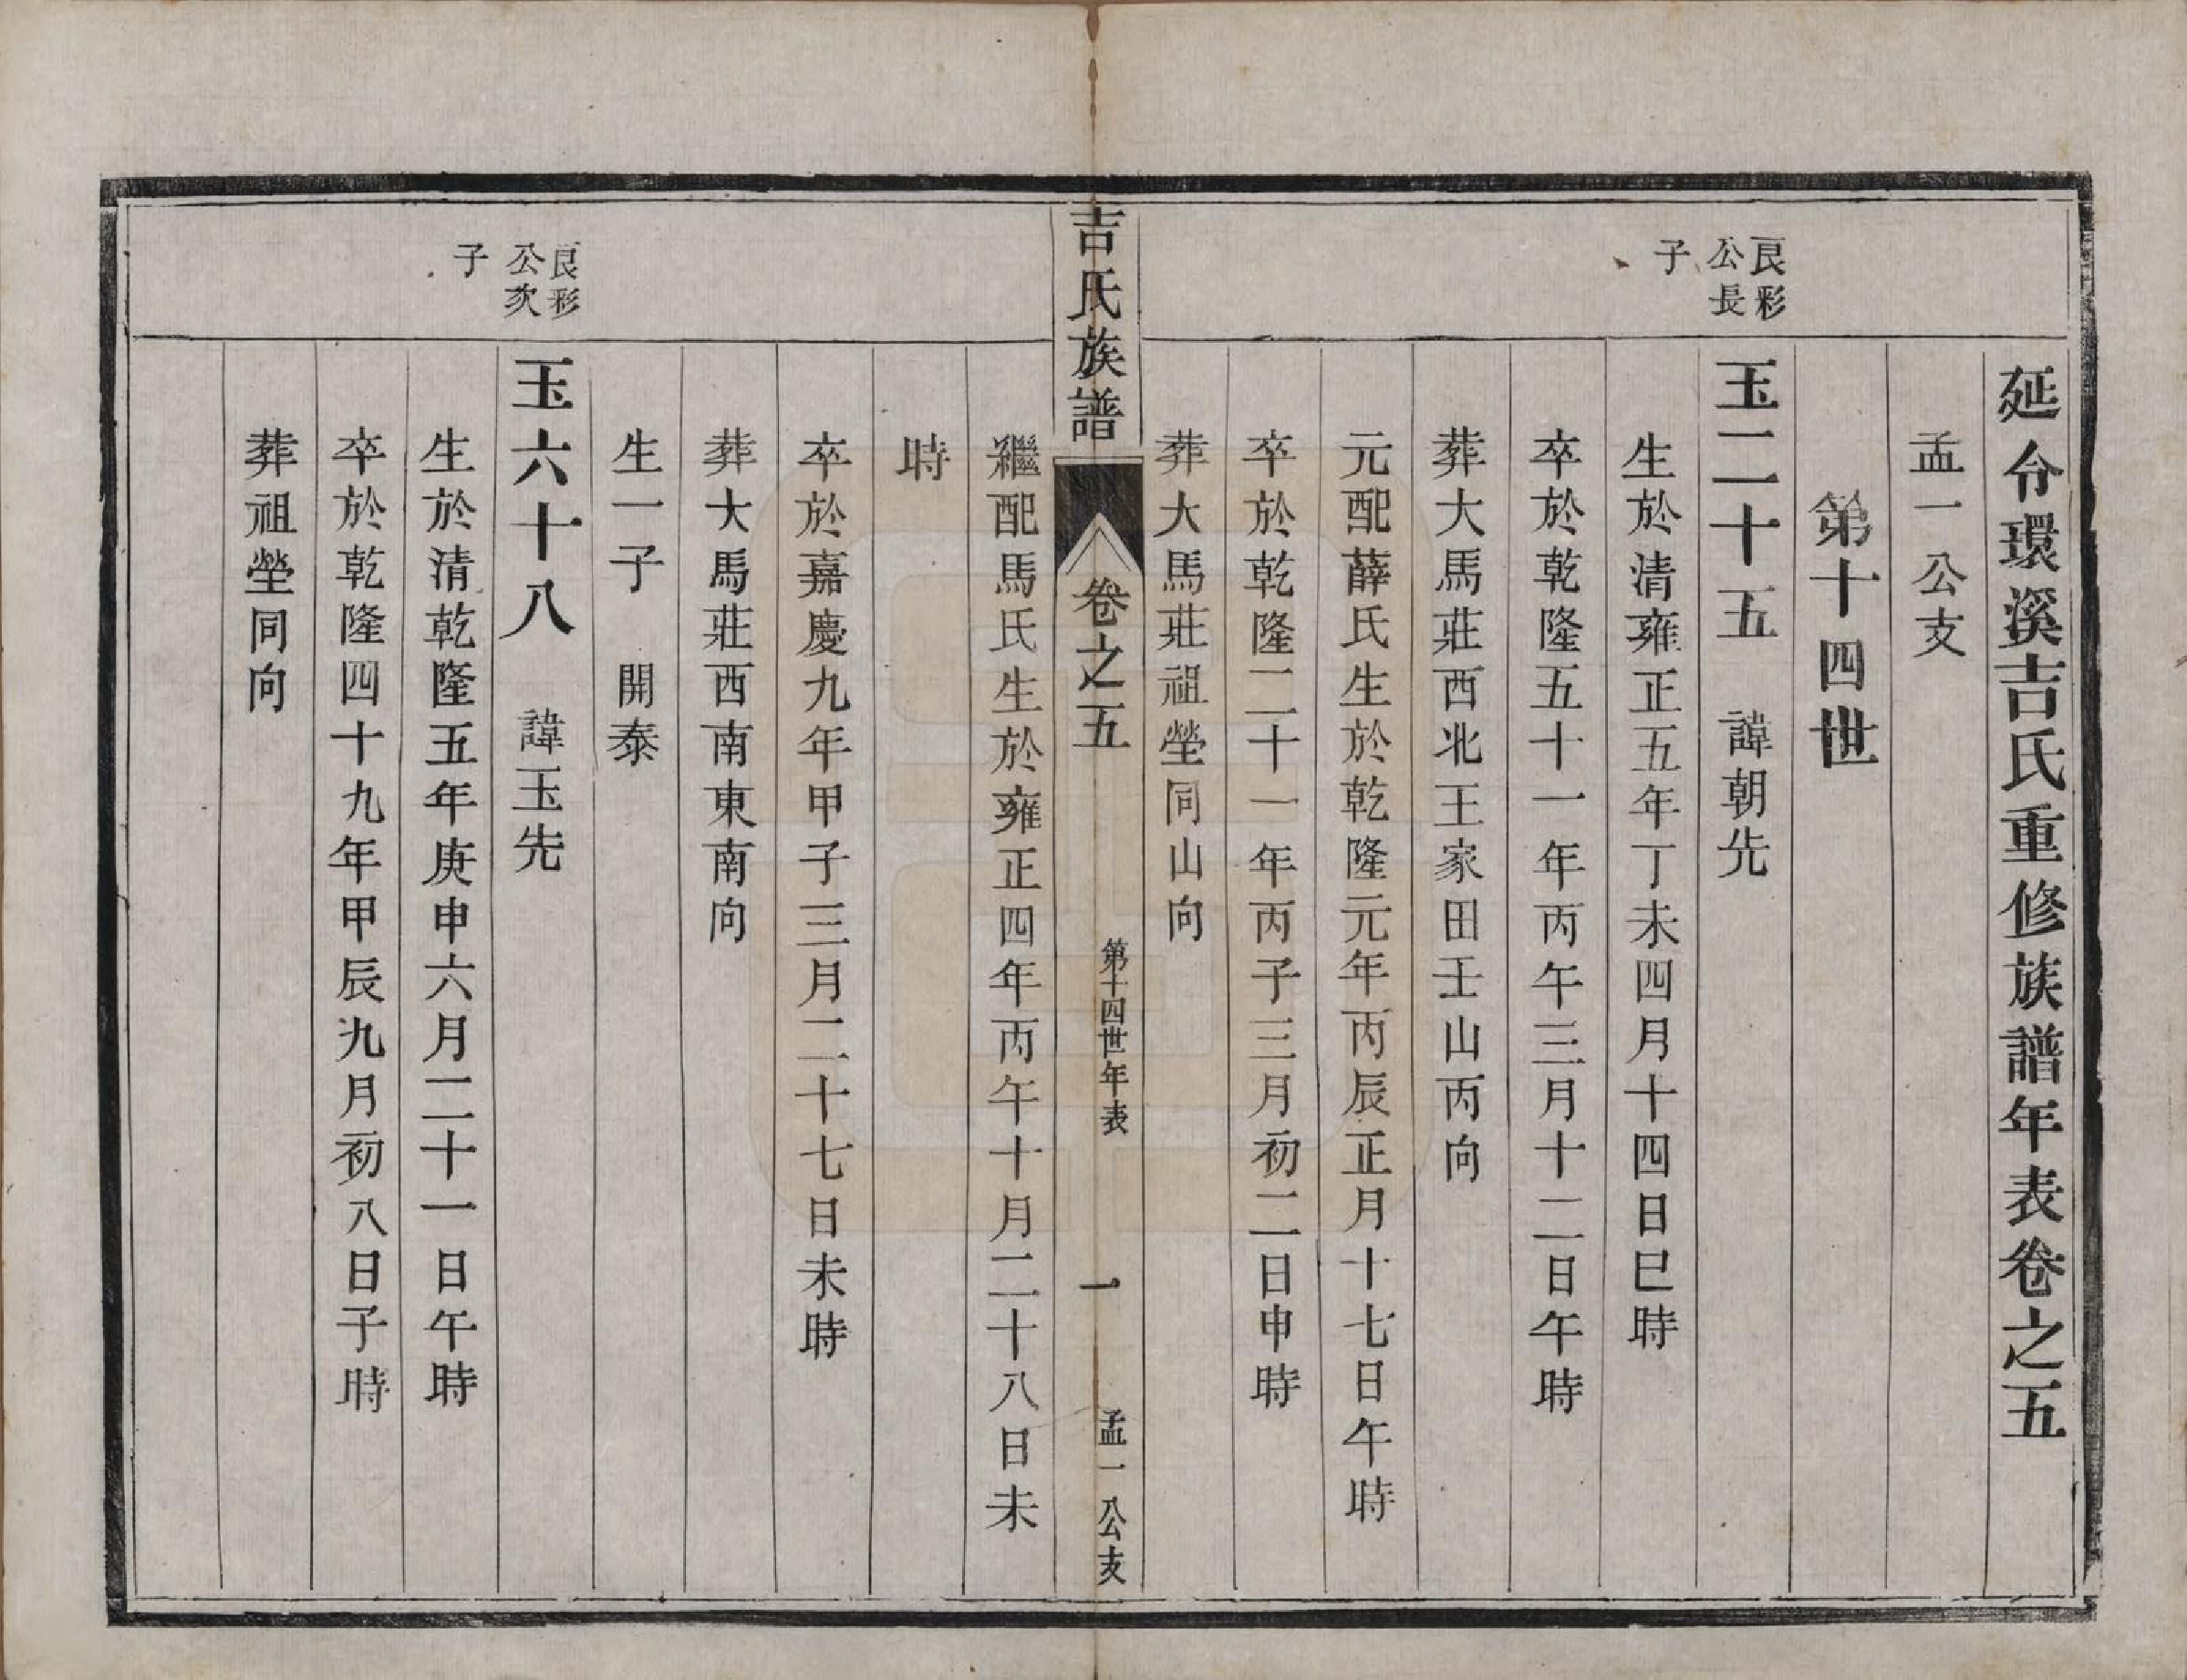 延令環溪吉氏重修族譜年表卷之五
孟一公支
第十四世
良彩
公長
子
玉二十五　諱朝先
生於清雍正五年丁未四月十四日巳時
卒於乾隆五十一年丙午三月十二日午時
葬大馬莊西北王家田壬山丙向
元配薛氏生於乾隆元年丙辰正月十七日午時
卒於乾隆二十一年丙子三月初二日申時
葬大馬莊祖塋同山向
吉氏族譜
卷之五
第十四世年表
一
孟一公支
繼配馬氏生於雍正四年丙午十月二十八日未
時
卒於嘉慶九年甲子三月二十七日未時
葬大馬莊西南東南向
生一子　開泰
良彩
公次
子
玉六十八　諱玉先
生於清乾隆五年庚申六月二十一日午時
卒於乾隆四十九年甲辰九月初八日子時
葬祖塋同向